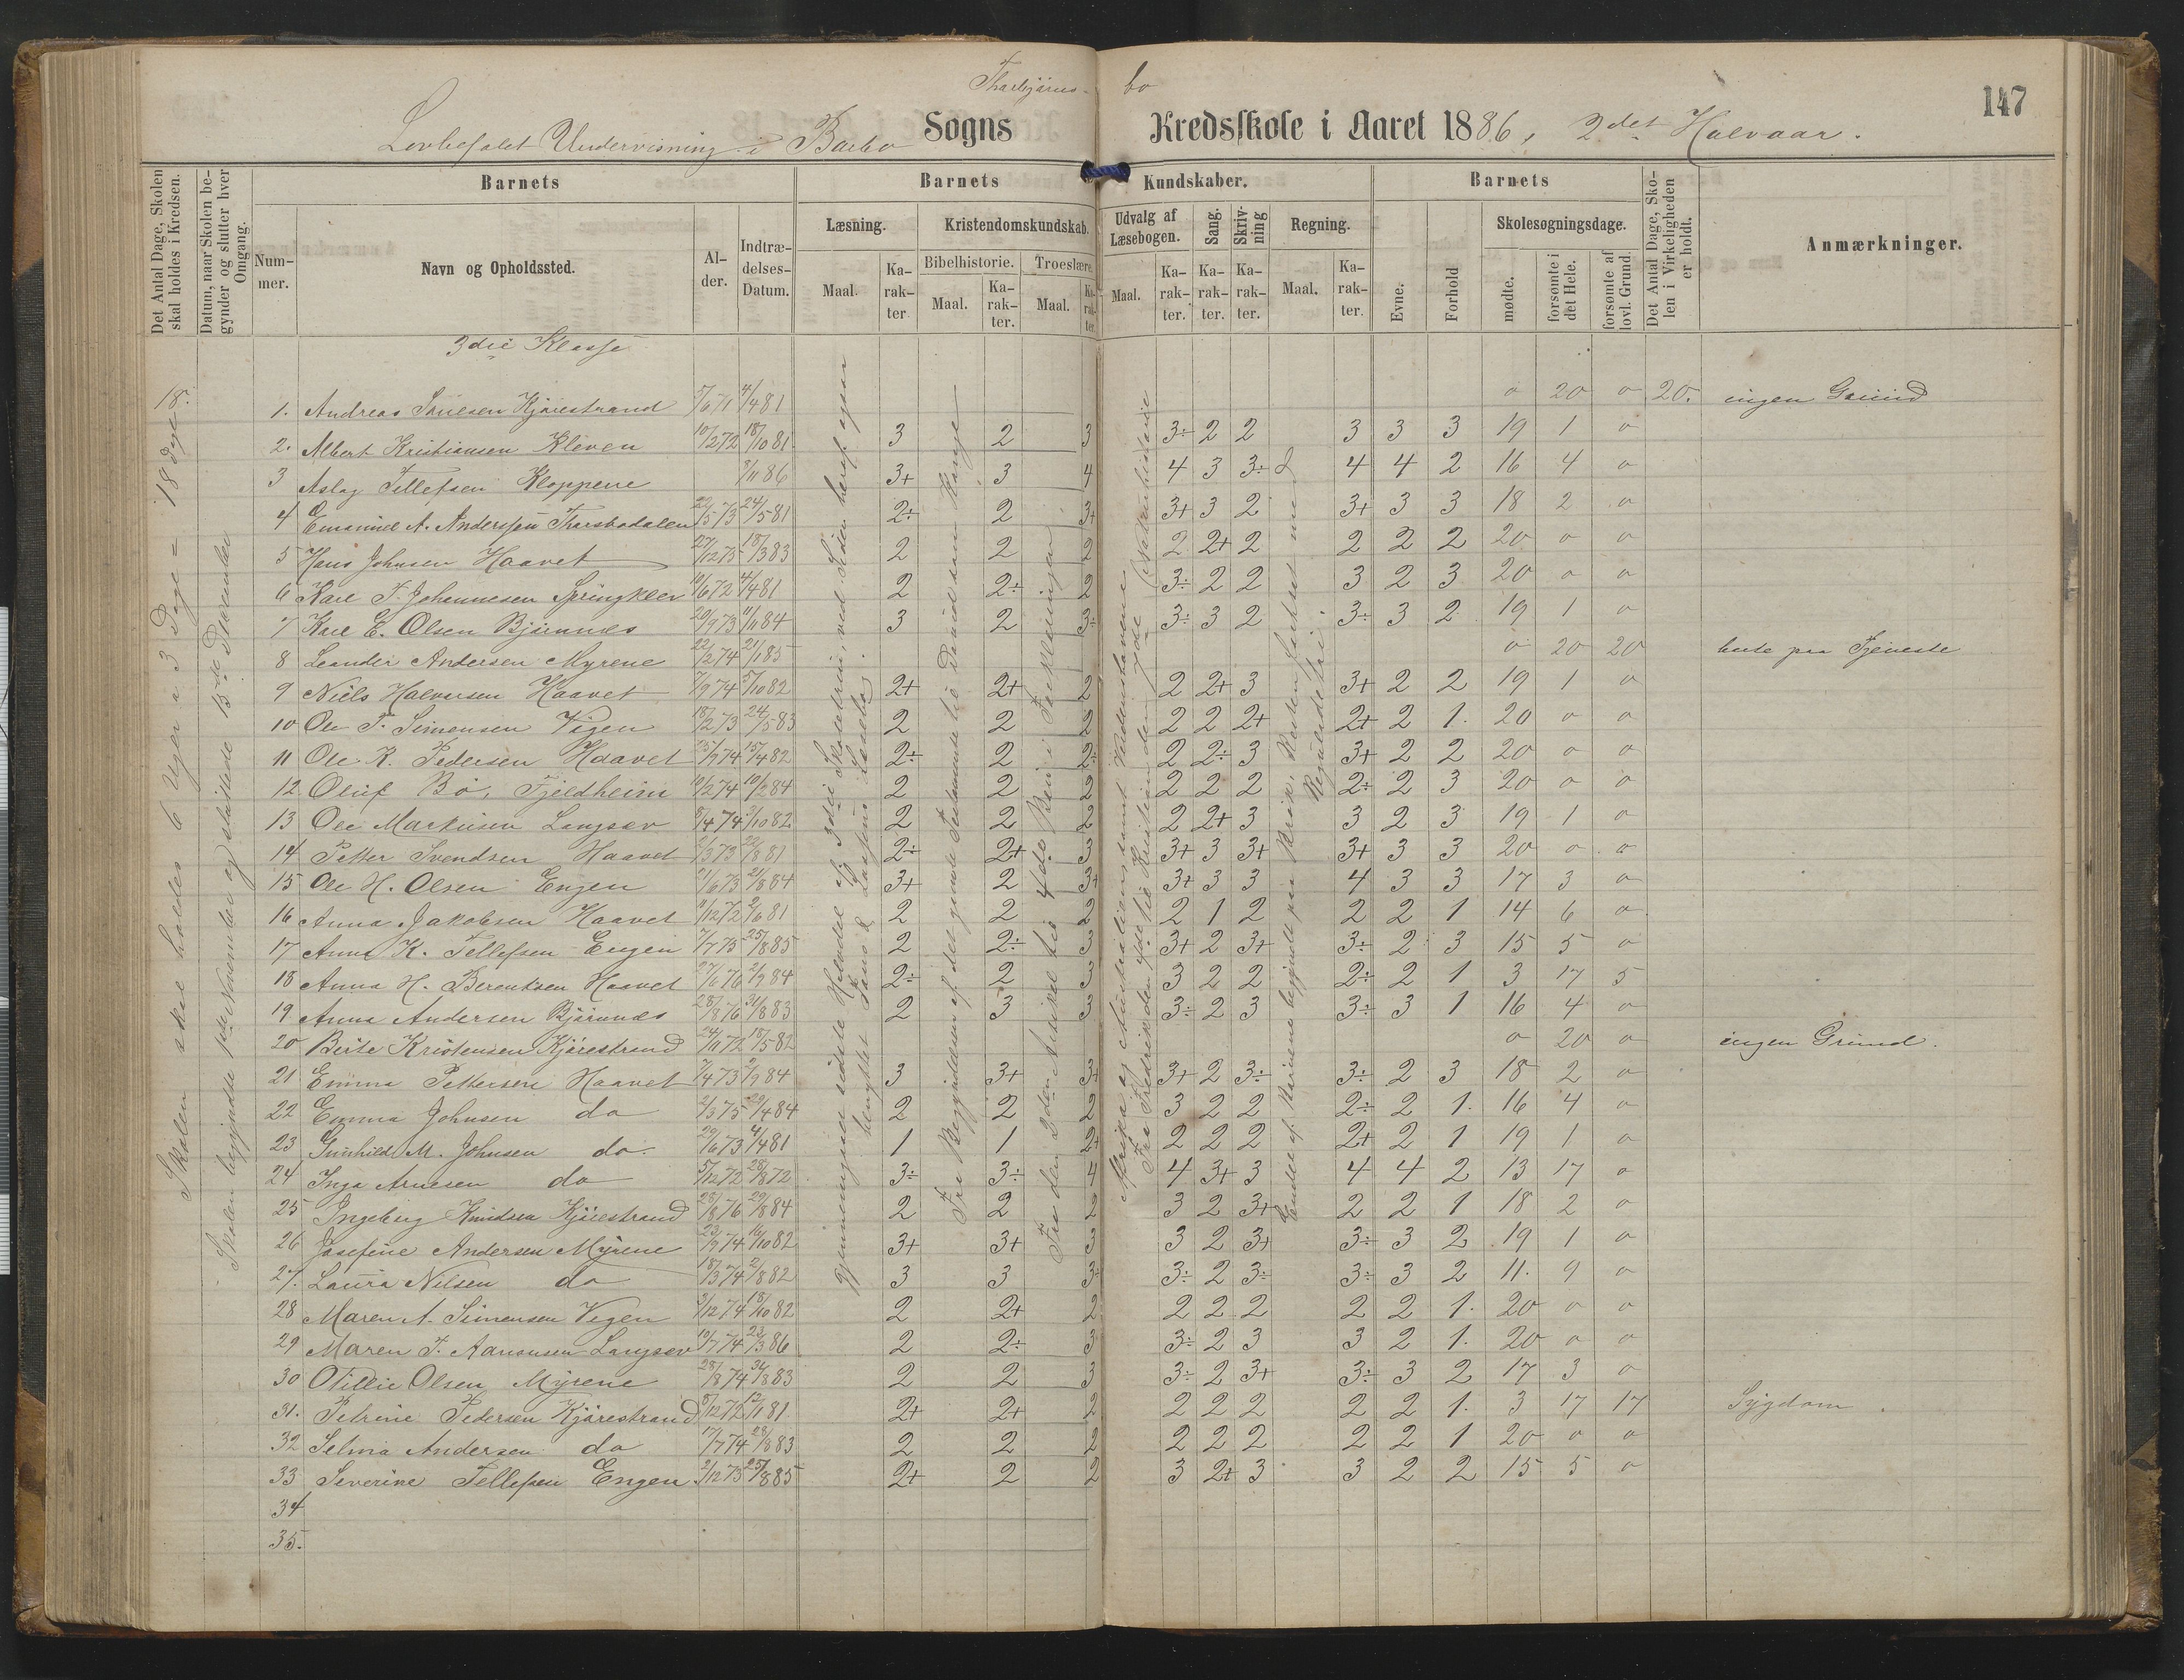 147
Lovbefalet Undervisning i Barbo Sogns Kredsskole i Aaret 1886, 2det Halvaar.
Det Antal Dage, Skolen skal holdes i Kredsen.
Datum, naar Skolen begynder og slutter hver Omgang.
Barnets
Nummer.
Navn og Opholdssted.
Alder.
Indtrædelses-Datum.
Barnets Kundskaber.
Læsning.
Maal.
Karakter.
Kristendomskundskab.
Bibelhistorie.
Maal.
Karakter.
Troeslære.
Maal.
Karakter.
Udvalg af Læsebogen.
Maal.
Karakter.
Sang.
Karakter.
Skrivning
Karakter.
Regning.
Maal.
Karakter.
Barnets
Evne.
Forhold
Skolesøgningsdage.
mødte.
forsømte i det Hele.
forsømte af lovl. Grund.
Det Antal Dage, Skolen i Virkeligheden er holdt.
Anmærkninger.
3die Klasse
Skolen skal holdes 6 Uger a 3 Dage = 18 Dage
18.
1. Andreas Kjørestrand 5/6 71 4/4 81 0 20 0 20. ingen Grund
2. Albert Kristiansen Kleven 10/2 72 18/10 81 3 2 3 3÷ 2 2 3 3 3 19 1 0
3 Aslag Tellefsen Kloppene 86 3+ 3 4 4 3 3÷ 4 4 2 16 4 0
4 Emanuel A. Anderssen 22/5 73 24/5 81 2÷ 2 3+ 3+ 3 2 3+ 3 3 18 2 0
5 Hans Johnsen Haavet 27/12 73 18/3 83 2 2 2 2 2+ 2 2 2 2 20 0 0
6 Karl T. Johannesen 10/6 72 4/4 81 2 2÷ 2 3÷ 2 2 3 2 3 20 0 0
7 Karl E. Olsen Bjønnes 20/9 73 84 3 2 3÷ 3÷ 3 2 3÷ 3 2 19 1 0
8 Leander Andersen Myrene 22/2 74 85 0 20 20 borte paa Tjeneste
9 Niels Halvorsen Haavet 7/9 74 5/10 82 2+ 2+ 2 2 2+ 3 3+ 2 2 19 1 0
10 Ole T. Simensen Vigen 18/2 73 24/5 83 2 2 2 2 2 2+ 2+ 2 1. 20 0 0
11 Ole K. Pedersen Haavet 25/9 74 15/4 82 2÷ 2 2÷ 2 2÷ 3 3+ 2 2 20 0 0
12. Oluf Bø, Fjeldheim 10/2 74 10/2 84 2 2 2 2 2 2 2÷ 2 3 20 0 0
13 Ole Markusen Langsev 8/4 74 2/10 82 2 2 2 2 2+ 3 3 2 3 19 1 0
14 Petter Svendsen Haavet 2/3 73 22/8 81 2÷ 2+ 3 3+ 3 3+ 3+ 3 3 20 0 0
15 Ole H. Olsen Engen 21/6 73 2/8 84 3+ 2 3+ 3+ 3 3 4 3 3 17 3 0
16 Anna Jakobsen Haavet 11/12 72 2/6 81 2 2 2 2 1 2 2 2 1 14 6 0
17 Anna K. Tellefsen Engen 7/7 75 25/8 85 2 2÷ 3 3+ 2 3+ 3÷ 2 3 15 5 0
18 Anna H. Berentsen Haavet 27/6 76 2/9 84 2÷ 2 3 3 2 2 2÷ 2 1 3 17 5
19 Anna Andersen Bjønnes 28/8 76 31/8 83 2 3 3 3÷ 2 3 3÷ 3 1 16 4 0
20 Berte Kristensen Kjørestrand 24/11 72 18/5 82 0 20 0 ingen Grund.
21 Emma Pettersen Haavet 7/4 73 2/9 84 3 3+ 3+ 3+ 2 3÷ 3÷ 2 3 18 2 0
22 Emma Johnsen do 2/3 75 29/4 84 2 2 2 3 2 2 2÷ 2 1. 16 4 0
23 Gunhild M. Johnsen do. 29/6 73 4/4 81 1 1 2+ 2 2 2 2+ 2 1 19 1 0
24 Inga Arnesen do 5/12 72 28/8 72 3÷ 3÷ 4 4 3+ 3 4 4 2 13 17 0
25 Ingeborg Knudsen Kjørestrand 28/8 76 29/8 84 2 2 2 3 2 3+ 2 2 1 18 2 0
26 Josefine Andersen Myrene 23/9 74 16/10 82 3+ 3+ 3 3 2 3+ 3÷ 3 2 19 1 0
27. Laura Nilsen do 18/3 74 2/8 82 3 3 3÷ 3÷ 2 3÷ 3÷ 3 2 11. 9 0
28 Maren A. Simensen Vegen 3/12 74 18/10 82 2 2+ 2 2 2 2 2 2 1. 20 0 0
29 Maren T. Aanonsen Langsev 10/7 74 23/3 86 2 2÷ 3 3÷ 2 3 3 2 1. 20 0 0
30 Otillie Olsen Myrene 28/8 74 31/8 83 2 2 3 3÷ 2 3+ 3÷ 3 2 17 3 0
31. Petrine Pedersen Kjørestrand 8/12 72 12/11 81 2+ 2+ 2 2 2 2 2 2 1. 3 17 17 Sygdom.
32 Selma Andersen do 17/7 74 28/8 83 2 2 2 2 2 2 2 2 1 20 0 0
33 Severine Tellefsen Engen 2/12 73 25/8 85 2+ 2 2 3 2+ 3 3 2 2 15 5 0
34
35.
Skolen begyndte 1ste November og sluttede 13de December
Fra Begyndelsen af det gamle Testamente til Davids som Konge
Fra den 2den Artikel til 4de Bøn i Forklaringen
Fra Fredrik den 4de til Kristian den 7de (Naturhistorie
Endel af Elevene begyndt paa Brøk, Resten forhen med Reguladetri.